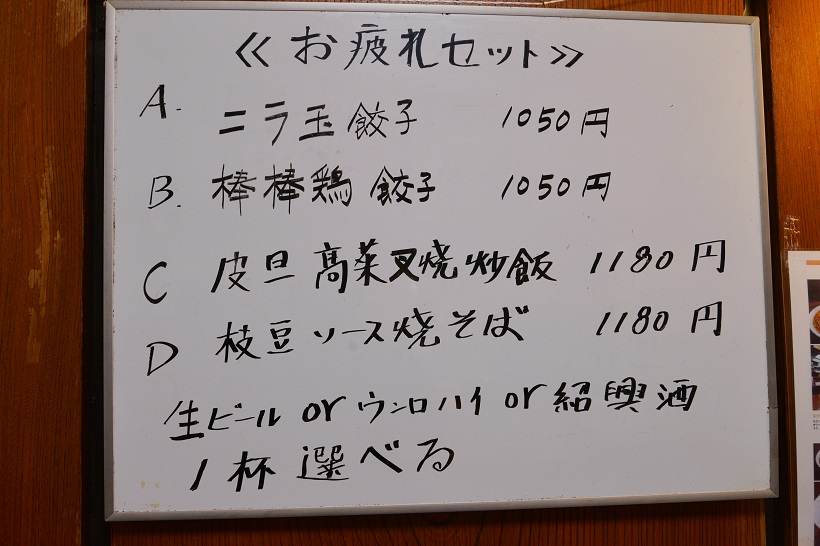 ≪お疲れセット≫
A. ニラ玉 餃子 1050円
B. 棒棒鶏 餃子 1050円
C 皮旦 高菜叉焼炒飯 1180円
D 枝豆 ソース焼そば 1180円
生ビール or ウーロンハイ or 紹興酒
1杯 選べる